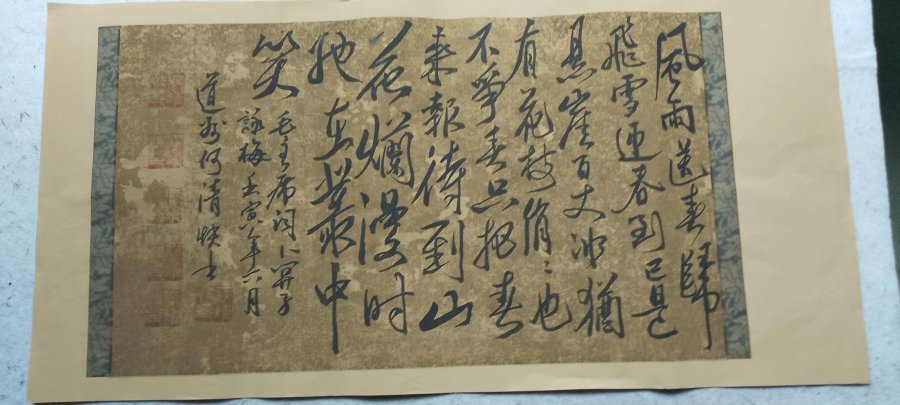 風雨送春歸
飛雪迎春到已是
悬崖百丈冰猶
有花枝俏俏也
不爭春只把春
来報待到山
花爛漫时
她在叢中
笑
毛主席词卜算子
詠梅壬寅年六月
道州何清书